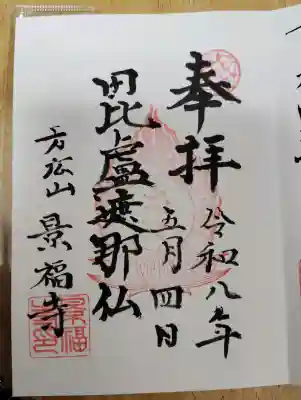 奉拝
令和八年
五月四日
毘盧遮那仏
方広山 景福寺